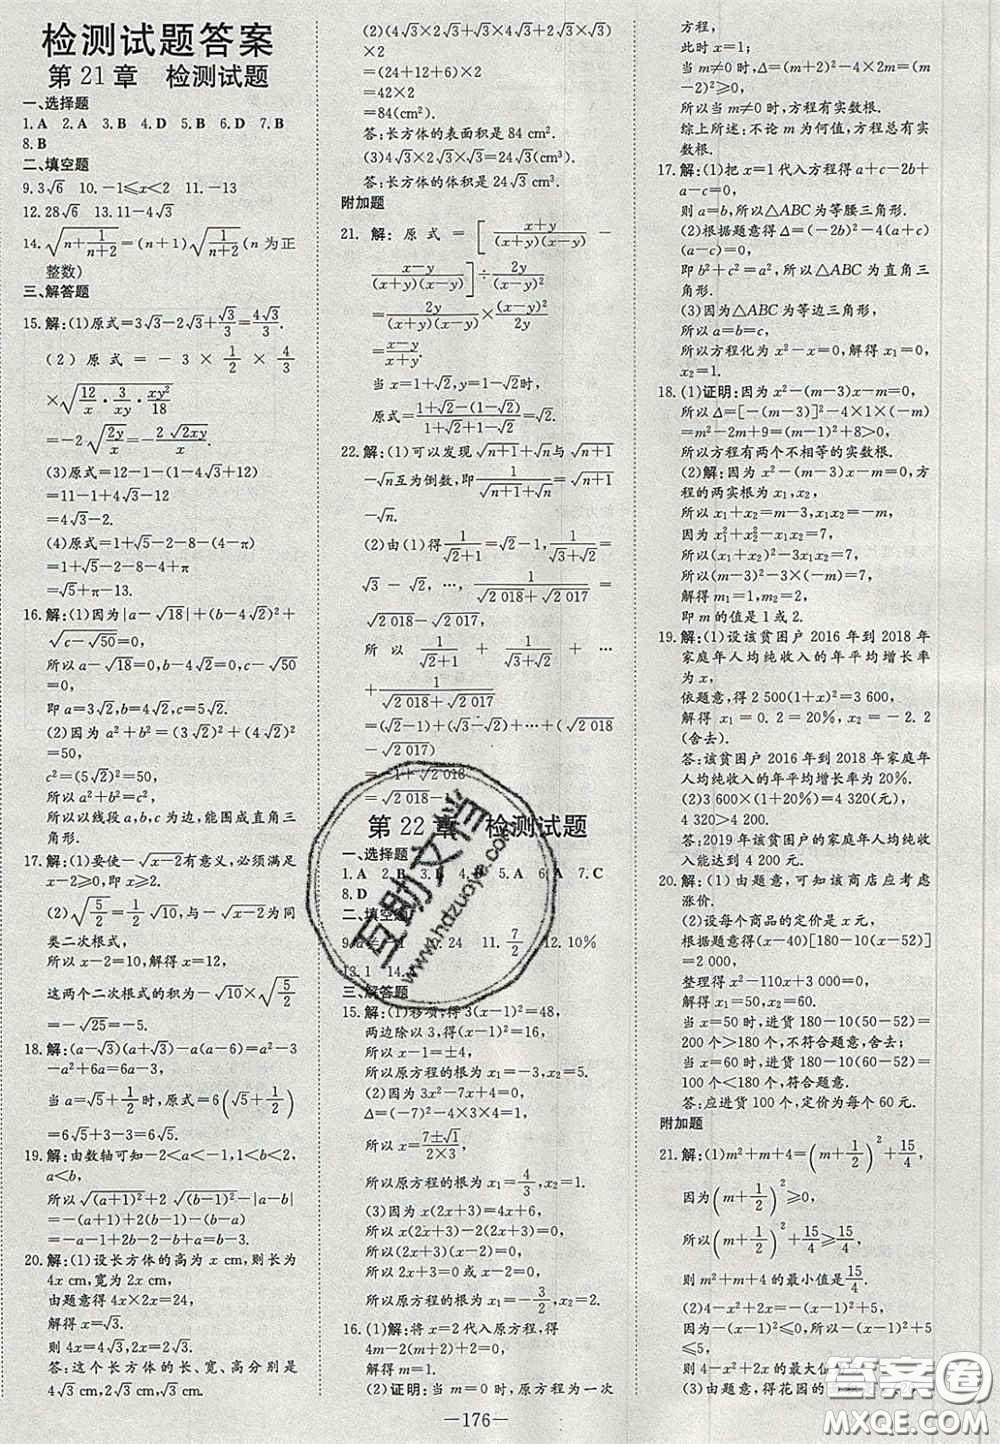 检测试题答案
第21章 检测试题
一、选择题
1.A 2.A 3.B 4.D 5.D 6.D 7.B
8.B
二、填空题
9.3√6 10.-1≤x<2 11.-13
12.28√6 13.11-4√3
14.√(n+1/(n+2))=(n+1)√(1/(n+2))(n为正
整数)
三、解答题
15.解:(1)原式=3√3-2√3+√3/3=4√3/3.
(2)原式=-3×1/2×4/3
×√(12/x·3/(xy)·xy²/18)
=-2√(2y/x)=-2√(2xy)/x.
(3)原式=12-1-(1-4√3+12)
=11-1+4√3-12
=4√3-2.
(4)原式=1+√5-2-8-4-(4-π)
=1+√5-2-8-4+π
=√5+π-13.
16.解:(1)因为|a-√18|+(b-4√2)²+
√(c-√50)=0,
所以a-√18=0,b-4√2=0,c-√50
=0,
即a=3√2,b=4√2,c=5√2.
(2)因为a²+b²=(3√2)²+(4√2)²
=50,
c²=(5√2)²=50,
所以a²+b²=c².
所以以线段a,b,c为边能构成直角三
角形.
17.解:(1)要使-√(x-2)有意义,必须满足
x-2≥0,即x≥2.
(2)√(5/2)=√10/2,与-√(x-2)为同
类二次根式,
所以x-2=10,解得x=12,
这两个二次根式的积为-√10×√(5/2)
=-√25=-5.
18.解:(a-√3)(a+√3)-a(a-6)=a²-3
-a²+6a=6a-3.
当a=√5+1/2时,原式=6(√5+1/2)-3
=6√5+3-3=6√5.
19.解:由数轴可知-2<a<-1,1<b<2,
a<b,
所以√(a+1)²+√(b-1)²-|a-b|
=-(a+1)+(b-1)-(b-a)
=-a-1+b-1-b+a=-2.
20.解:(1)设长方体的高为x cm,则长为
4x cm,宽为2x cm.
由题意得4x×2x=24,
解得x=√3,
则4x=4√3,2x=2√3.
答:这个长方体的长、宽、高分别是
4√3 cm,2√3 cm,√3 cm.
(2)(4√3×2√3+4√3×√3+2√3×√3)
×2
=(24+12+6)×2
=42×2
=84(cm²).
答:长方体的表面积是84 cm².
(3)4√3×2√3×√3=24√3(cm³).
答:长方体的体积是24√3 cm³.
附加题
21.解:原式=[(x+y)/((x+y)(x-y))-
(x-y)/((x+y)(x-y))]÷2y/(x-y)²
=2y/((x+y)(x-y))×(x-y)²/2y
=(x-y)/(x+y).
当x=1+√2,y=1-√2时,
原式=(1+√2-(1-√2))/(1+√2+1-√2)=√2.
22.解:(1)可以发现√(n+1)+√n与√(n+1)
-√n互为倒数,即1/(√(n+1)+√n)=√(n+1)
-√n.
(2)由(1)得1/(√2+1)=√2-1,1/(√3+√2)=
√3-√2,…,1/(√2 018+√2 017)=
√2 018-√2 017,
所以1/(√2+1)+1/(√3+√2)+…
+1/(√2 018+√2 017)
=(√2-1)+(√3-√2)+…+(√2 018
-√2 017)
=-1+√2 018
=√2 018-1.
第22章 检测试题
一、选择题
1.A 2.B 3.B 4.B 5.A 6.A 7.C
8.D
二、填空题
10.24 11.7/2 12.10%
13.1 14.
三、解答题
15.解:(1)移项,得3(x-1)²=48,
两边除以3,得(x-1)²=16,
所以x-1=±4,
所以原方程的根为x₁=-3,x₂=5.
(2)因为3x²-7x+4=0,
Δ=(-7)²-4×3×4=1,
所以x=(7±√1)/(2×3),
所以原方程的根为x₁=4/3,x₂=1.
(3)因为x(2x+3)=4x+6,
所以x(2x+3)=2(2x+3),
所以(2x+3)(x-2)=0,
所以原方程的根为x₁=-3/2,x₂=2.
16.(1)解:将x=2代入原方程,得
4m-2(m+2)+2=0,
解得m=1.
(2)证明:当m=0时,原方程为一次
方程,
此时x=1;
当m≠0时,Δ=(m+2)²-4×2m=(m-
2)²≥0,
所以当m≠0时,方程有实数根.
综上所述:不论m为何值,方程总有实
数根.
17.解:(1)把x=1代入方程得a+c-2b+
a-c=0,
则a=b,所以△ABC为等腰三角形.
(2)根据题意得Δ=(-2b)²-4(a+c)
(a-c)=0,
即b²+c²=a²,所以△ABC为直角三
角形.
(3)因为△ABC为等边三角形,
所以a=b=c,
所以方程化为x²-x=0,解得x₁=0,
x₂=1.
18.(1)证明:因为x²-(m-3)x-m=0,
所以Δ=[-(m-3)]²-4×1×(-m)
=m²-2m+9=(m-1)²+8>0,
所以方程有两个不相等的实数根.
(2)解:因为x²-(m-3)x-m=0,
方程的两实根为x₁,x₂,
所以x₁+x₂=m-3,x₁x₂=-m.
因为x₁²+x₂²-x₁x₂=7,
所以(x₁+x₂)²-3x₁x₂=7,
所以(m-3)²-3×(-m)=7,
解得m₁=1,m₂=2,
即m的值是1或2.
19.解:(1)设该贫困户2016年到2018年
家庭年人均纯收入的年平均增长率
为x,
依题意,得2 500(1+x)²=3 600,
解得x₁=0.2=20%,x₂=-2.2
(舍去).
答:该贫困户2016年到2018年家庭年
人均纯收入的年平均增长率为20%.
(2)3 600×(1+20%)=4 320(元),
4 320>4 200.
答:2019年该贫困户的家庭年人均纯收
入能达到4 200元.
20.解:(1)由题意,可知该商店应考虑
涨价.
(2)设每个商品的定价是x元.
根据题意得(x-40)[180-10(x-52)]
=2 000,
整理得x²-110x+3 000=0,
解得x₁=50,x₂=60.
当x=50时,进货180-10(50-52)=
200个>180个,不符合题意,舍去;
当x=60时,进货180-10(60-52)=
100个<180个,符合题意.
答:应进货100个,定价为每个60元.
附加题
21.解:(1)m²+m+4=(m+1/2)²+15/4,
因为(m+1/2)²≥0,
所以(m+1/2)²+15/4≥15/4,
则m²+m+4的最小值是15/4.
(2)4-x²+2x=-(x-1)²+5,
因为-(x-1)²≤0,所以-(x-1)²+5
≤5,
则4-x²+2x的最大值
(3)由题意,得花园的
—176—
互助文档
www.hdzuoye.com
答案圈
MXQE.COM